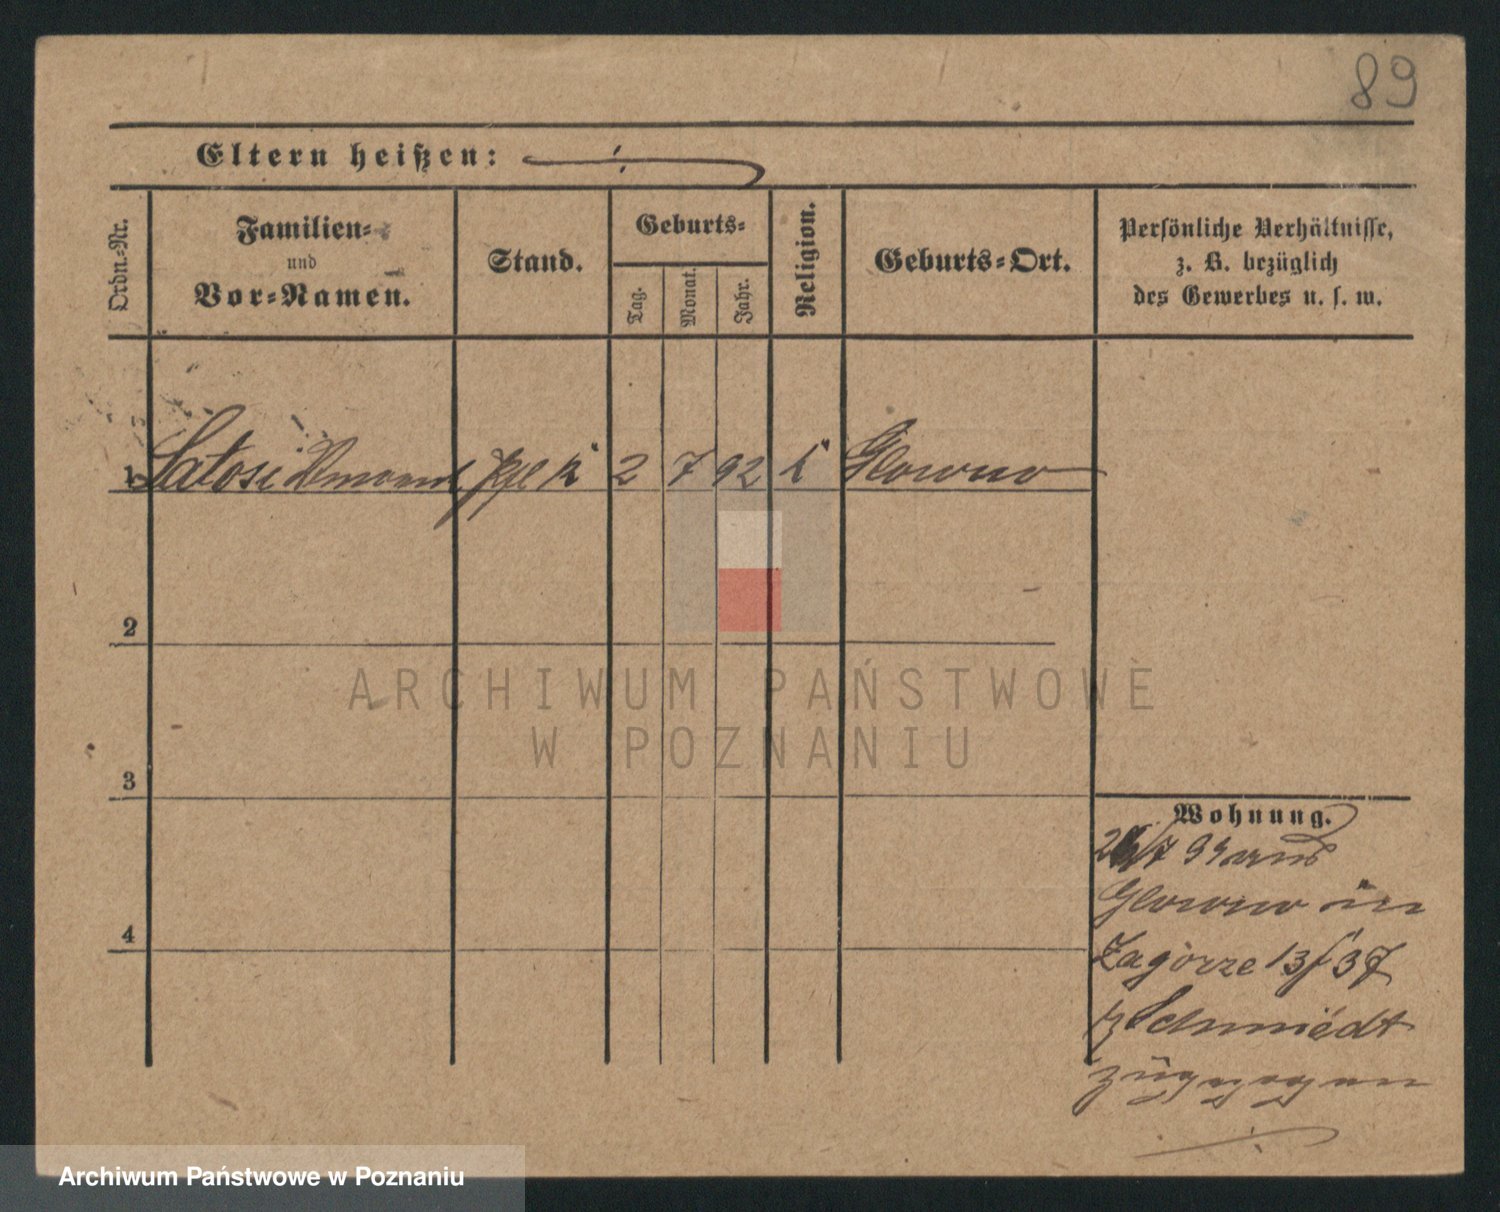 89
Eltern heißen:
Ordn.-Nr.
Familien- und Vor-Namen.
Stand.
Geburts-
Tag.
Monat.
Jahr.
Religion.
Geburts-Ort.
Persönliche Verhältnisse,
z. B. bezüglich
des Gewerbes u. s. w.
1 2 7 92 Glowno
2
3
4
Wohnung.
/7
Glowno in
Zagorze 13/
Schmiedt
zugezogen
ARCHIWUM PAŃSTWOWE
W POZNANIU
Archiwum Państwowe w Poznaniu